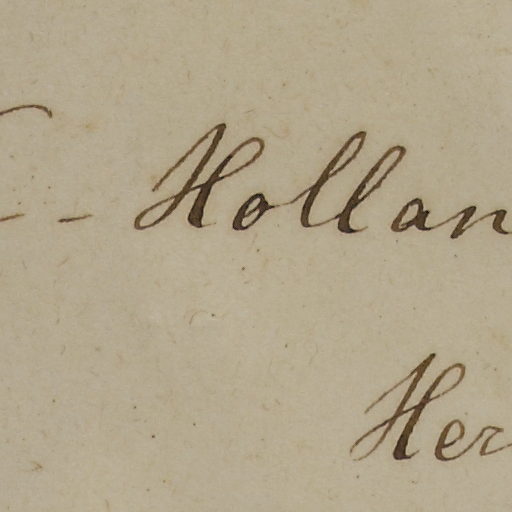 - - Hollan
Her